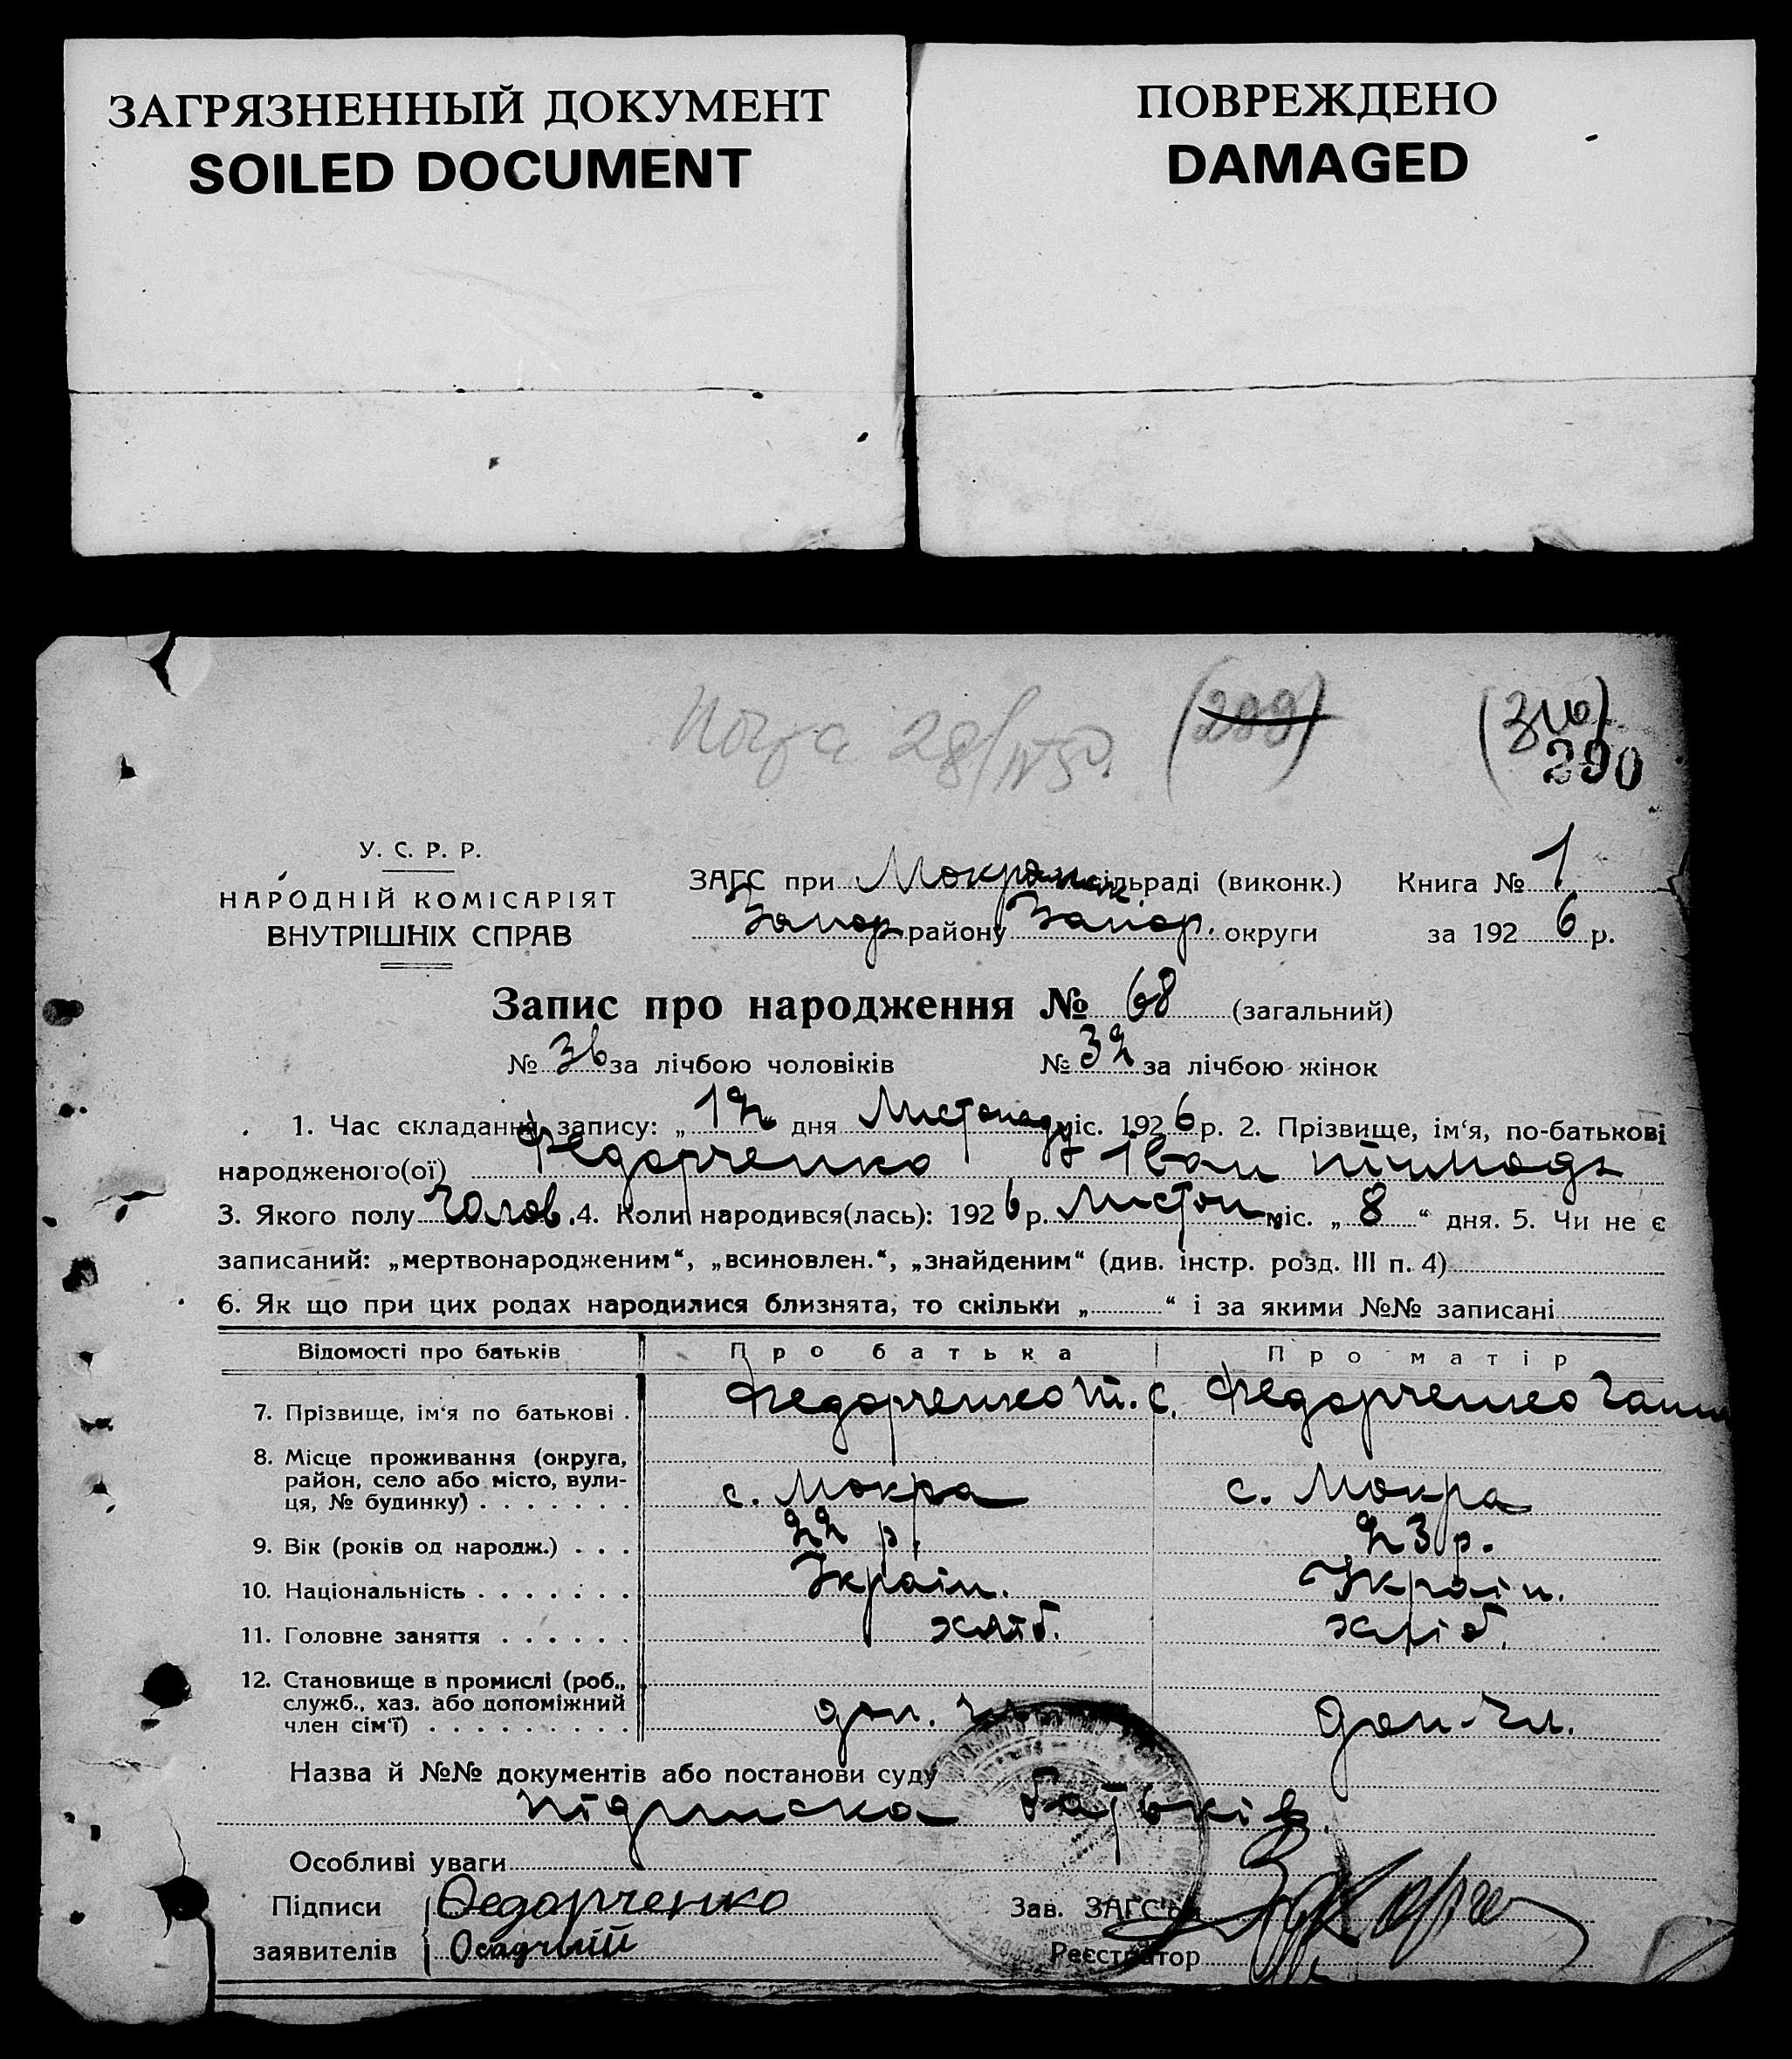 ЗАГРЯЗНЕННЫЙ ДОКУМЕНТ
SOILED DOCUMENT
ПОВРЕЖДЕНО
DAMAGED
28/IV50. (299) (310)
290
У. С. Р. Р.
НАРОДНІЙ КОМІСАРІЯТ
ВНУТРІШНІХ СПРАВ
ЗАГС при Мокрянск сільраді (виконк.) Книга № 1
Запор району Запор. округи за 1926 р.
Запис про народження № 68 (загальний)
№ 36 за лічбою чоловіків № 32 за лічбою жінок
1. Час складання запису: „12“ дня Листопаду міс. 1926 р. 2. Прізвище, ім‘я, по-батькові
народженого(ої) Федорченко Іван
3. Якого полу Чолов. 4. Коли народився(лась): 1926 р. Листоп міс. „8“ дня. 5. Чи не є
записаний: „мертвонародженим“, „всиновлен.“, „знайденим“ (див. інстр. розд. III п. 4)
6. Як що при цих родах народилися близнята, то скільки „ “ і за якими №№ записані
Відомості про батьків Про батька Про матір
7. Прізвище, ім‘я по батькові . Федорченко Т. С. Федорченко Ганн
8. Місце проживання (округа,
район, село або місто, вули-
ця, № будинку) . . . . . . . с. Мокра с. Мокра
9. Вік (років од народж.) . . . 22 р. 23 р.
10. Національність . . . . . . . Україн. Україн.
11. Головне заняття . . . . . . хліб. хліб.
12. Становище в промислі (роб.,
служб., хаз. або допоміжний
член сім‘ї) . . . . . . . . . доп. чл. доп. чл.
Назва й №№ документів або постанови суду
підписка батьків.
Особливі уваги
Підписи Федорченко Зав. ЗАГС‘ом
заявителів Осадчий Реєстратор